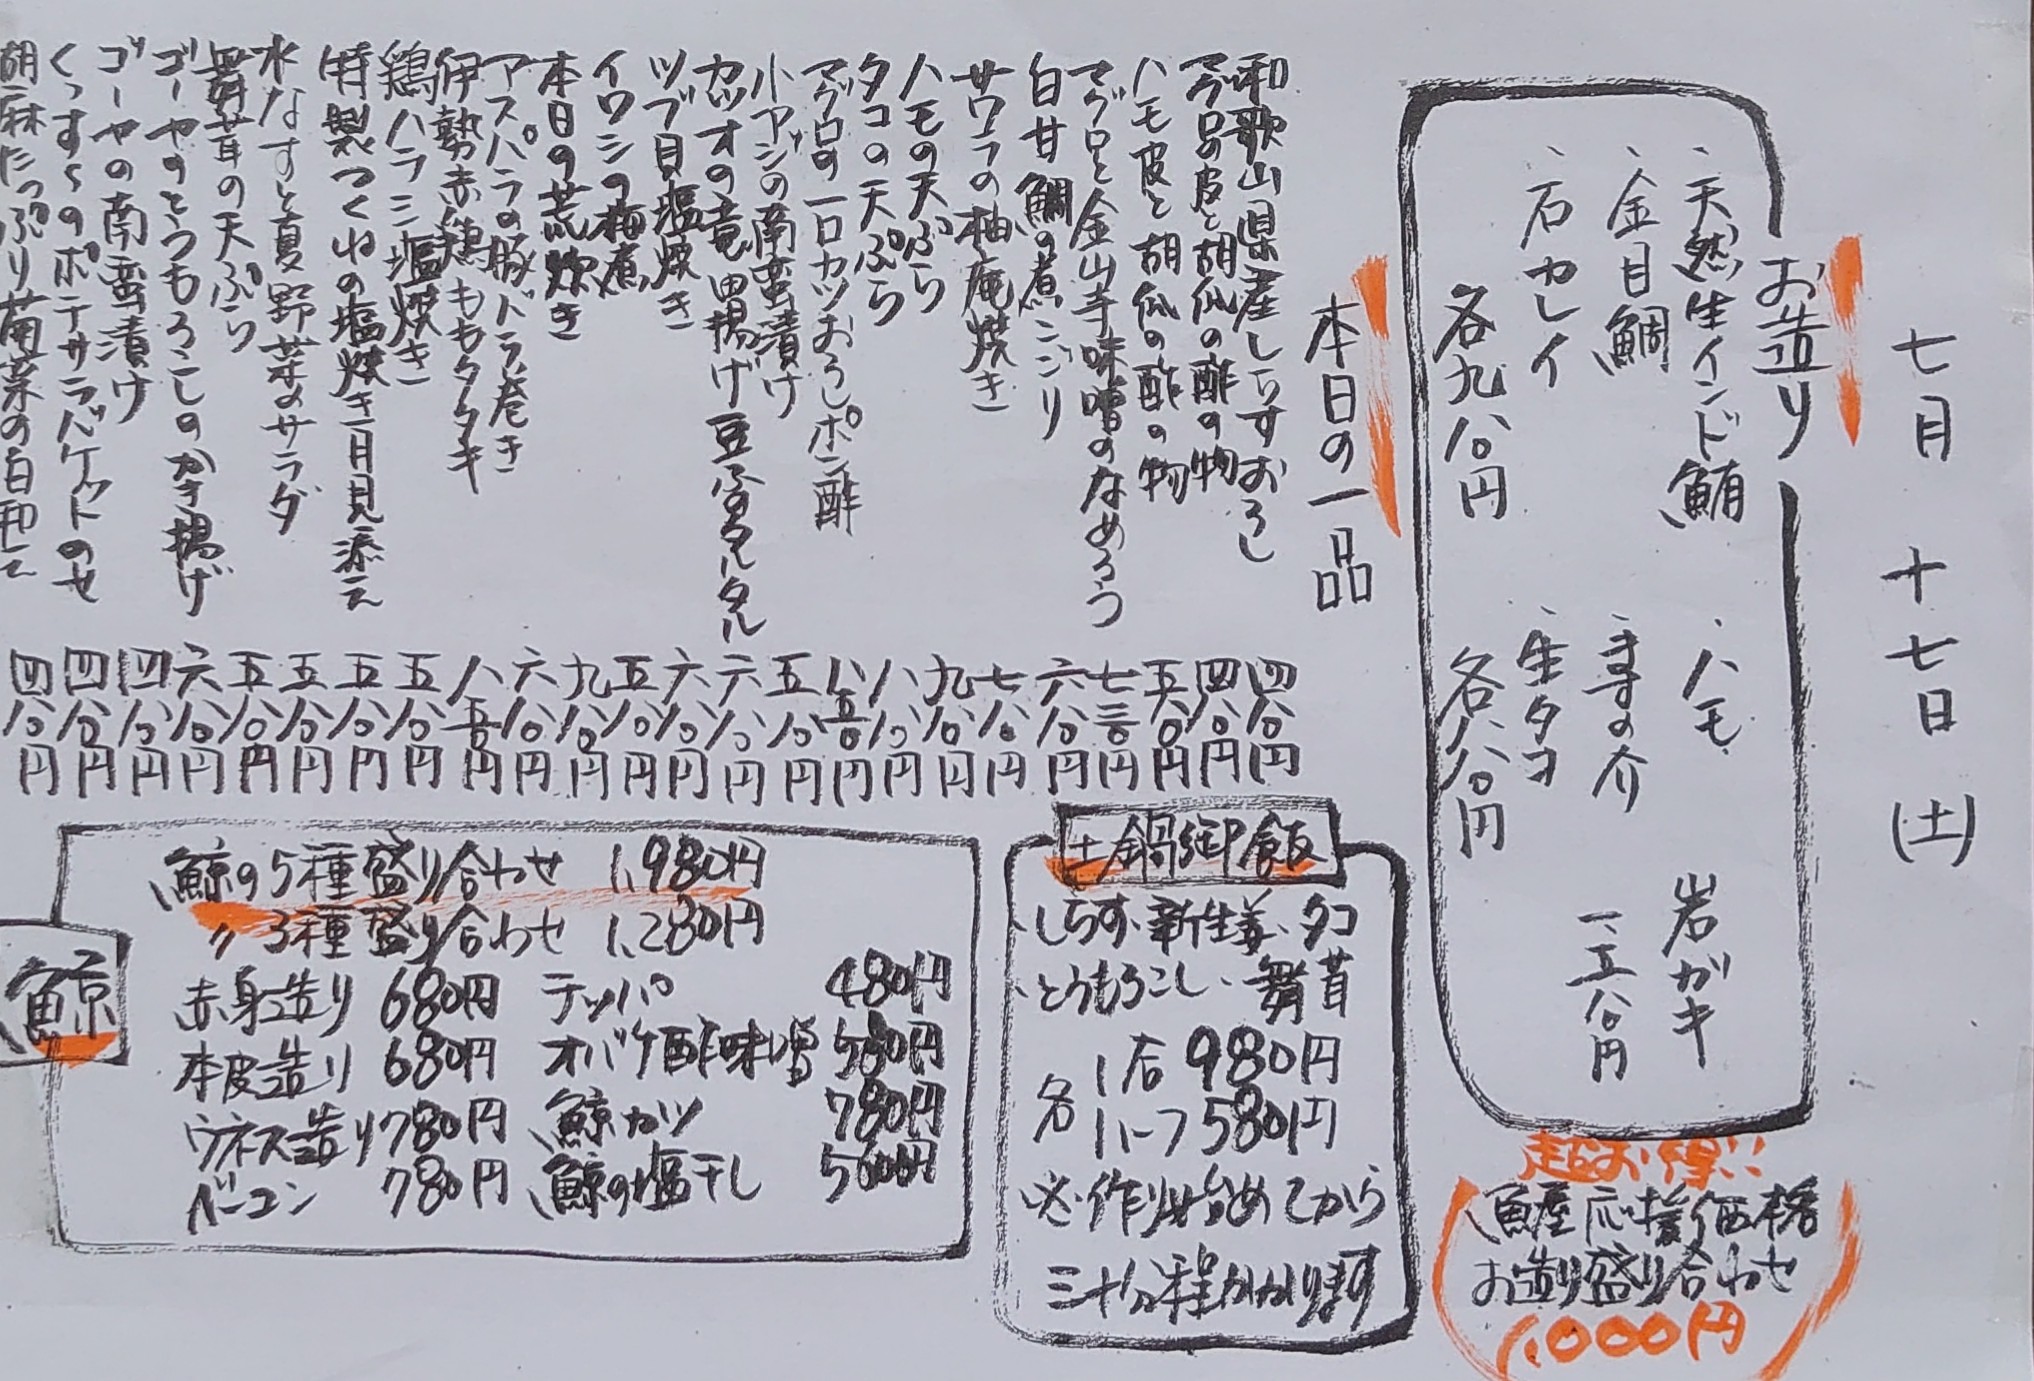 七月 十七日 (土)
お造り
、天然生インド鮪 、ハモ 岩ガキ
、金目鯛 、ますの介 一、一八〇円
、石カレイ 、生タコ
各九八〇円 各八八〇円
超お得!!
魚屋応援価格
お造り盛り合わせ
1,000円
本日の一品
和歌山県産しらすおろし 四八〇円
マグロの皮と胡瓜の酢の物 四八〇円
ハモ皮と胡瓜の酢の物 五八〇円
マグロと金山寺味噌のなめろう 七三〇円
白甘鯛の煮こごり 六八〇円
サワラの柚庵焼き 七八〇円
ハモの天ぷら 九八〇円
タコの天ぷら 八八〇円
マグロの一口カツおろしポン酢 八五〇円
小アジの南蛮漬け 五八〇円
カツオの竜田揚げ豆ふタルタル 六八〇円
ツブ貝塩焼き 六八〇円
イワシの梅煮 五八〇円
本日の荒炊き 九八〇円
アスパラの豚バラ巻き 六八〇円
伊勢赤鶏ももタタキ 八五〇円
鶏ハラミ塩焼き 五八〇円
特製つくねの塩焼き月見添え 五八〇円
水なすと夏野菜のサラダ 五八〇円
舞茸の天ぷら 五八〇円
ゴーヤのとうもろこしのかき揚げ 六八〇円
ゴーヤの南蛮漬け 四八〇円
くっす〜のポテサラバケットのせ 四八〇円
胡麻たっぷり菊菜の白和え 四八〇円
土鍋御飯
、しらす、新生姜、タコ
、とうもろこし、舞茸
各 1合 980円
ハーフ 580円
必、作り始めてから
三十分程かかります
鯨
鯨の5種盛り合わせ 1,980円
〃 3種盛り合わせ 1,280円
赤身造り 680円 テッパ 480円
本皮造り 680円 オバケ酢味噌 580円
ウネス造り 780円 鯨カツ 780円
ベーコン 780円 鯨の塩干し 500円